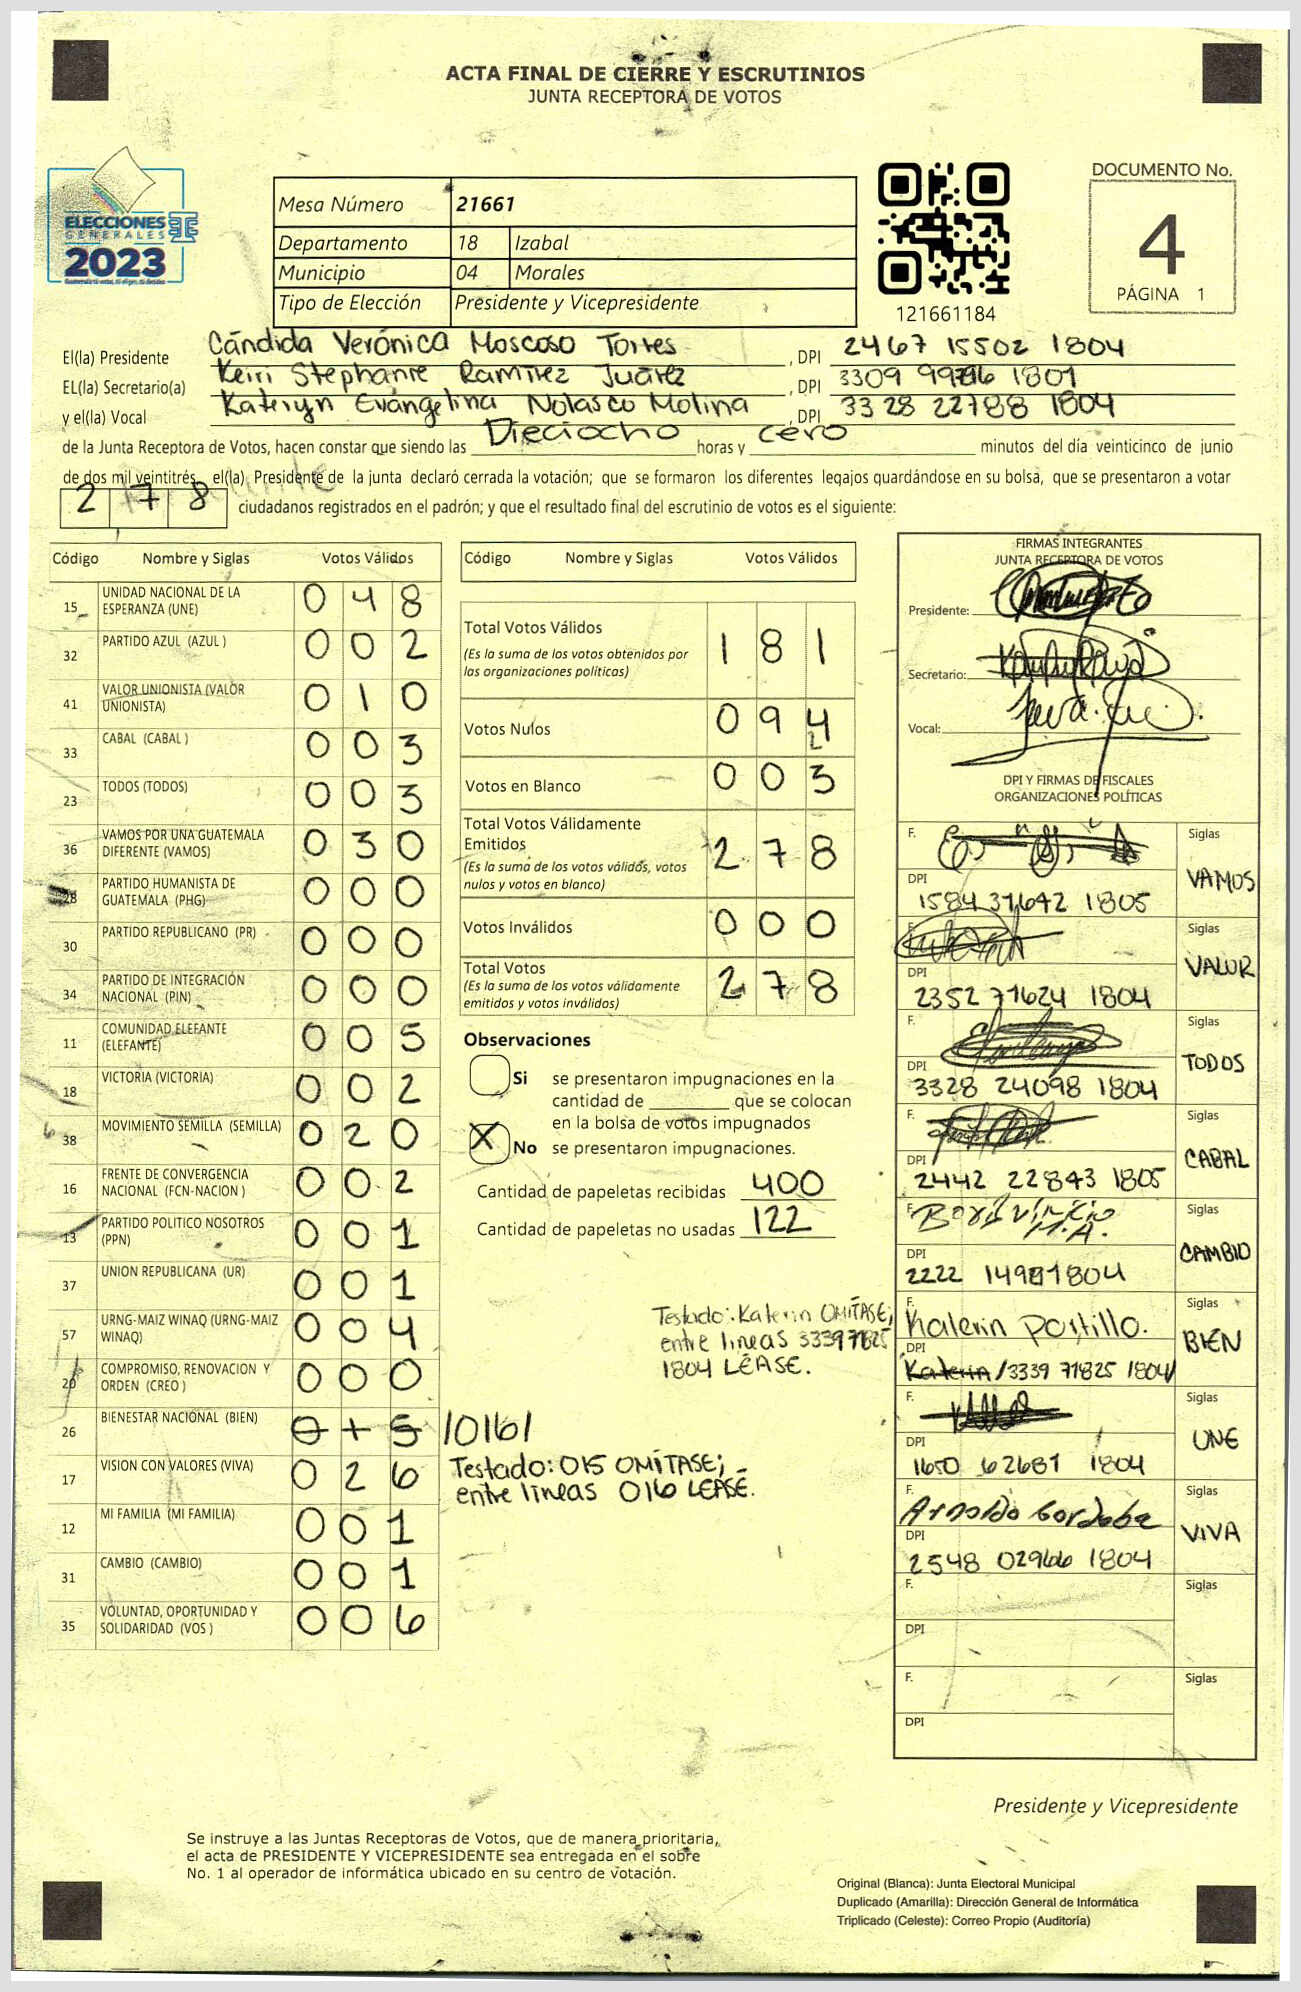 ACTA FINAL DE CIERRE Y ESCRUTINIOS
JUNTA RECEPTORA DE VOTOS
ELECCIONES
GENERALES
2023
Mesa Número 21661
Departamento 18 Izabal
Municipio 04 Morales
Tipo de Elección Presidente y Vicepresidente
121661184
DOCUMENTO No.
4
PÁGINA 1
El(la) Presidente Cándida Verónica Moscoso Torres , DPI 2467 15502 1804
EL(la) Secretario(a) Keiri Stephanie Ramírez Juárez , DPI 3309 1801
y el(la) Vocal Kateryn Evángelina Nolasco Molina , DPI 3328 22788 1804
de la Junta Receptora de Votos, hacen constar que siendo las Dieciocho horas y cero minutos del día veinticinco de junio
de dos mil veintitrés, el(la) Presidente de la junta declaró cerrada la votación; que se formaron los diferentes legajos guardándose en su bolsa, que se presentaron a votar
278 ciudadanos registrados en el padrón; y que el resultado final del escrutinio de votos es el siguiente:
Código Nombre y Siglas Votos Válidos
15 UNIDAD NACIONAL DE LA ESPERANZA (UNE) 0 4 8
32 PARTIDO AZUL (AZUL ) 0 0 2
41 VALOR UNIONISTA (VALOR UNIONISTA) 0 1 0
33 CABAL (CABAL ) 0 0 3
23 TODOS (TODOS) 0 0 3
36 VAMOS POR UNA GUATEMALA DIFERENTE (VAMOS) 0 3 0
28 PARTIDO HUMANISTA DE GUATEMALA (PHG) 0 0 0
30 PARTIDO REPUBLICANO (PR) 0 0 0
34 PARTIDO DE INTEGRACIÓN NACIONAL (PIN) 0 0 0
11 COMUNIDAD ELEFANTE (ELEFANTE) 0 0 5
18 VICTORIA (VICTORIA) 0 0 2
38 MOVIMIENTO SEMILLA (SEMILLA) 0 2 0
16 FRENTE DE CONVERGENCIA NACIONAL (FCN-NACION ) 0 0 2
13 PARTIDO POLITICO NOSOTROS (PPN) 0 0 1
37 UNION REPUBLICANA (UR) 0 0 1
57 URNG-MAIZ WINAQ (URNG-MAIZ WINAQ) 0 0 4
20 COMPROMISO, RENOVACION Y ORDEN (CREO ) 0 0 0
26 BIENESTAR NACIONAL (BIEN) 0 1 5 /016/
17 VISION CON VALORES (VIVA) 0 2 6
12 MI FAMILIA (MI FAMILIA) 0 0 1
31 CAMBIO (CAMBIO) 0 0 1
35 VOLUNTAD, OPORTUNIDAD Y SOLIDARIDAD (VOS ) 0 0 6
Testado: 015 OMÍTASE;
entre líneas 016 LEASE.
Código Nombre y Siglas Votos Válidos
Total Votos Válidos 1 8 1
(Es la suma de los votos obtenidos por
las organizaciones políticas)
Votos Nulos 0 9 4
Votos en Blanco 0 0 3
Total Votos Válidamente
Emitidos 2 7 8
(Es la suma de los votos válidos, votos
nulos y votos en blanco)
Votos Inválidos 0 0 0
Total Votos 2 7 8
(Es la suma de los votos válidamente
emitidos y votos inválidos)
Observaciones
Si se presentaron impugnaciones en la
cantidad de que se colocan
en la bolsa de votos impugnados
X No se presentaron impugnaciones.
Cantidad de papeletas recibidas 400
Cantidad de papeletas no usadas 122
Testado: Katerin OMÍTASE;
entre líneas 3339 71825
1804 LÉASE.
FIRMAS INTEGRANTES
JUNTA RECEPTORA DE VOTOS
Presidente:
Secretario:
Vocal:
DPI Y FIRMAS DE FISCALES
ORGANIZACIONES POLÍTICAS
F. Siglas
DPI VAMOS
1584 37642 1805
F. Siglas
DPI VALOR
2352 71624 1804
F. Siglas
DPI TODOS
3328 24098 1804
F. Siglas
DPI CABAL
2442 22843 1805
F. Siglas
DPI CAMBIO
2222 1804
F. Katerin Portillo. Siglas
DPI BIEN
Katerin /3339 71825 1804/
F. Siglas
DPI UNE
1650 62681 1804
F. Arnoldo Cordoba Siglas
DPI VIVA
2548 02966 1804
F. Siglas
DPI
F. Siglas
DPI
Presidente y Vicepresidente
Se instruye a las Juntas Receptoras de Votos, que de manera prioritaria,
el acta de PRESIDENTE Y VICEPRESIDENTE sea entregada en el sobre
No. 1 al operador de informática ubicado en su centro de votación.
Original (Blanca): Junta Electoral Municipal
Duplicado (Amarilla): Dirección General de Informática
Triplicado (Celeste): Correo Propio (Auditoría)